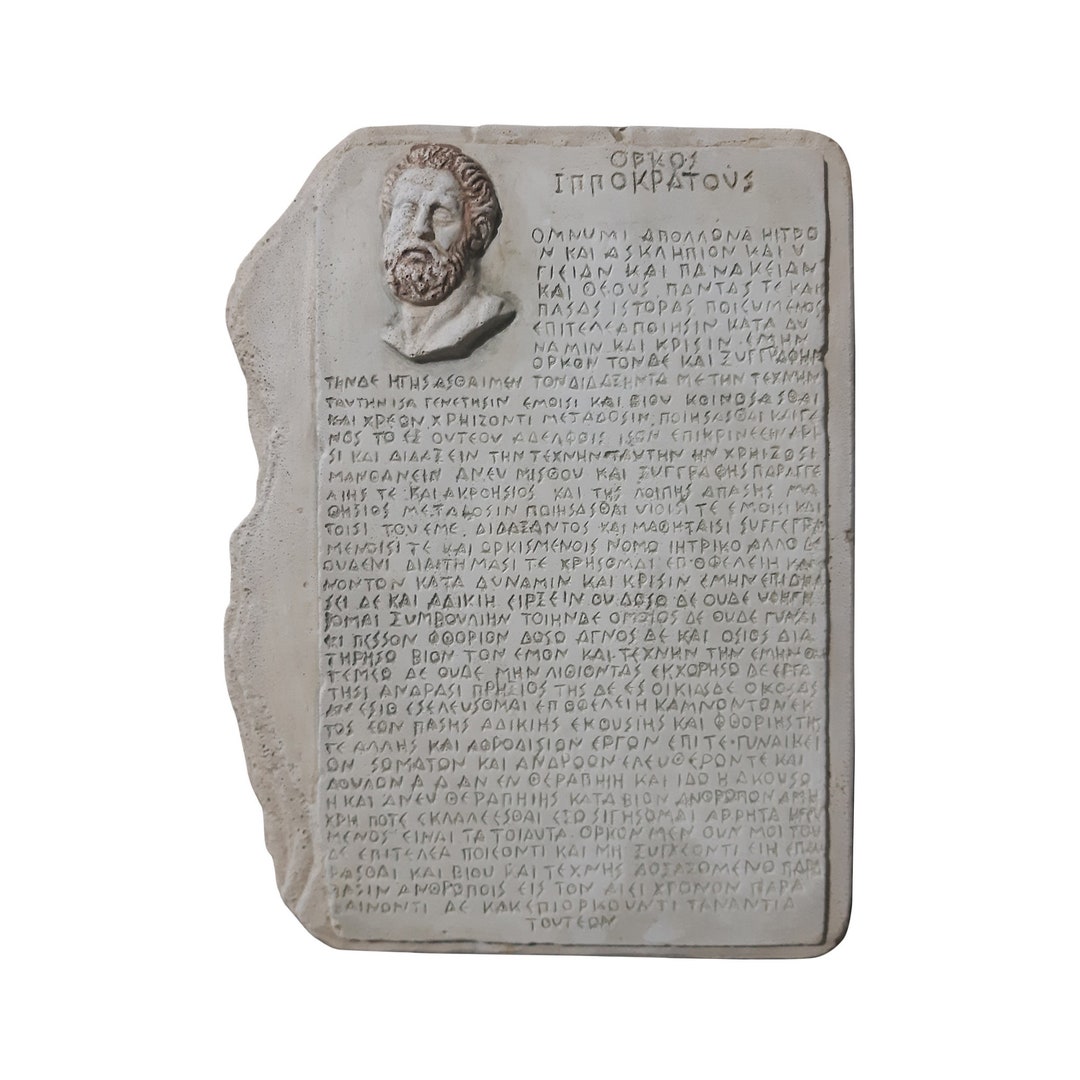 ΟΡΚΟS
ΙΠΠΟΚΡΑΤΟUS
ΟΜΝUΜΙ ΑΠΟΛΛΟΝΑ ΗΙΤΡΟ
Ν ΚΑΙ ΑSΚΛΗΠΙΟΝ ΚΑΙ U
ΓΙΕΙΑΝ ΚΑΙ ΠΑΝΑΚΕΙΑΝ
ΚΑΙ ΘΕΟUS ΠΑΝΤΑS ΤΕ ΚΑΙ
ΠΑSΑS ΙSΤΟΡΑS ΠΟΙΕUΜΕΝΟS
ΕΠΙΤΕΛΕΑ ΠΟΙΗSΙΝ ΚΑΤΑ ΔU
ΝΑΜΙΝ ΚΑΙ ΚΡΙSΙΝ ΕΜΗΝ
ΟΡΚΟΝ ΤΟΝΔΕ ΚΑΙ ΞUΓΓΡΑΦΗΝ
ΤΗΝΔΕ ΗΓΗSΑSΘΑΙ ΜΕΝ ΤΟΝ ΔΙΔΑΞΗΝΤΑ ΜΕ ΤΗΝ ΤΕΧΝΗΝ
ΤΑUΤΗΝ ΙSΑ ΓΕΝΕΤΗSΙΝ ΕΜΟΙSΙ ΚΑΙ ΒΙΟU ΚΟΙΝΟSΑSΘΑΙ
ΚΑΙ ΧΡΕΟΝ ΧΡΗΙΖΟΝΤΙ ΜΕΤΑΔΟSΙΝ ΠΟΙΗSΑSΘΑΙ ΚΑΙ ΓΕ
ΝΟS ΤΟ ΕΞ ΟUΤΕΟU ΑΔΕΛΦΟΙS ΙSΟΝ ΕΠΙΚΡΙΝΕΕΗΝ ΑΡΙ
SΙ ΚΑΙ ΔΙΔΑΞΕΙΝ ΤΗΝ ΤΕΧΝΗΝ ΤΑUΤΗΝ ΗΝ ΧΡΗΙΖΟSΙ
ΜΑΝΘΑΝΕΙΝ ΑΝΕU ΜΙSΘΟU ΚΑΙ ΞUΓΓΡΑΦΗS ΠΑΡΑΓΓΕ
ΛΙΗS ΤΕ ΚΑΙ ΑΚΡΟΗSΙΟS ΚΑΙ ΤΗS ΛΟΙΠΗS ΑΠΑSΗS ΜΑ
ΘΗSΙΟS ΜΕΤΑΔΟSΙΝ ΠΟΙΗSΑSΘΑΙ UΙΟΙSΙ ΤΕ ΕΜΟΙSΙ ΚΑΙ
ΤΟΙSΙ ΤΟU ΕΜΕ ΔΙΔΑΞΑΝΤΟS ΚΑΙ ΜΑΘΗΤΑΙSΙ SUΓΓΕΓΡΑ
ΜΕΝΟΙSΙ ΤΕ ΚΑΙ ΟΡΚΙSΜΕΝΟΙS ΝΟΜΟ ΙΗΤΡΙΚΟ ΑΛΛΟ ΔΕ
ΟUΔΕΝΙ ΔΙΑΙΤΗΜΑSΙ ΤΕ ΧΡΗSΟΜΑΙ ΕΠ ΟΦΕΛΕΙΗ ΚΑΜ
ΝΟΝΤΟΝ ΚΑΤΑ ΔUΝΑΜΙΝ ΚΑΙ ΚΡΙSΙΝ ΕΜΗΝ ΕΠΙ ΔΗΛΗ
SΕΙ ΔΕ ΚΑΙ ΑΔΙΚΙΗ ΕΙΡΞΕΙΝ ΟU ΔΟSΟ ΔΕ ΟUΔΕ UΦΗΓΗ
SΟΜΑΙ ΞUΜΒΟUΛΙΗΝ ΤΟΙΗΝΔΕ ΟΜΟΙΟS ΔΕ ΟUΔΕ ΓUΝΑΙ
ΚΙ ΠΕSSΟΝ ΦΘΟΡΙΟΝ ΔΟSΟ ΑΓΝΟS ΔΕ ΚΑΙ ΟSΙΟS ΔΙΑ
ΤΗΡΗSΟ ΒΙΟΝ ΤΟΝ ΕΜΟΝ ΚΑΙ ΤΕΧΝΗΝ ΤΗΝ ΕΜΗΝ ΟU
ΤΕΜΕΟ ΔΕ ΟUΔΕ ΜΗΝ ΛΙΘΙΟΝΤΑS ΕΚΧΟΡΗSΟ ΔΕ ΕΡΓΑ
ΤΗSΙ ΑΝΔΡΑSΙ ΠΡΗΞΙΟS ΤΗS ΔΕ ΕS ΟΙΚΙΑS ΔΕ ΟΚΟSΑS
ΑΝ ΕSΙΟ ΕSΕΛΕUSΟΜΑΙ ΕΠ ΟΦΕΛΕΙΗ ΚΑΜΝΟΝΤΟΝ ΕΚ
ΤΟS ΕΟΝ ΠΑSΗS ΑΔΙΚΙΗS ΕΚΟUSΙΗS ΚΑΙ ΦΘΟΡΙΗS ΤΗS
ΤΕ ΑΛΛΗS ΚΑΙ ΑΦΡΟΔΙSΙΟΝ ΕΡΓΟΝ ΕΠΙ ΤΕ ΓUΝΑΙΚΕΙ
ΟΝ SΟΜΑΤΟΝ ΚΑΙ ΑΝΔΡΟΟΝ ΕΛΕUΘΕΡΟΝ ΤΕ ΚΑΙ
ΔΟUΛΟΝ Α Δ ΑΝ ΕΝ ΘΕΡΑΠΗΙΗ ΚΑΙ ΙΔΟ Η ΑΚΟUSΟ
Η ΚΑΙ ΑΝΕU ΘΕΡΑΠΗΙΗS ΚΑΤΑ ΒΙΟΝ ΑΝΘΡΟΠΟΝ Α ΜΗ
ΧΡΗ ΠΟΤΕ ΕΚΛΑΛΕΕSΘΑΙ ΕΞΟ SΙΓΗSΟΜΑΙ ΑΡΡΗΤΑ ΗΓΕU
ΜΕΝΟS ΕΙΝΑΙ ΤΑ ΤΟΙΑUΤΑ ΟΡΚΟΝ ΜΕΝ ΟUΝ ΜΟΙ ΤΟU
ΔΕ ΕΠΙΤΕΛΕΑ ΠΟΙΕΟΝΤΙ ΚΑΙ ΜΗ ΞUΓΧΕΟΝΤΙ ΕΙΗ ΕΠΑU
ΡΑSΘΑΙ ΚΑΙ ΒΙΟU ΚΑΙ ΤΕΧΝΗS ΔΟΞΑΖΟΜΕΝΟ ΠΑΡΑ
ΠΑSΙΝ ΑΝΘΡΟΠΟΙS ΕΙS ΤΟΝ ΑΙΕΙ ΧΡΟΝΟΝ ΠΑΡΑ
ΒΑΙΝΟΝΤΙ ΔΕ ΚΑΚ ΕΠΙΟΡΚΟUΝΤΙ ΤΑΝΑΝΤΙΑ
ΤΟUΤΕΟΝ